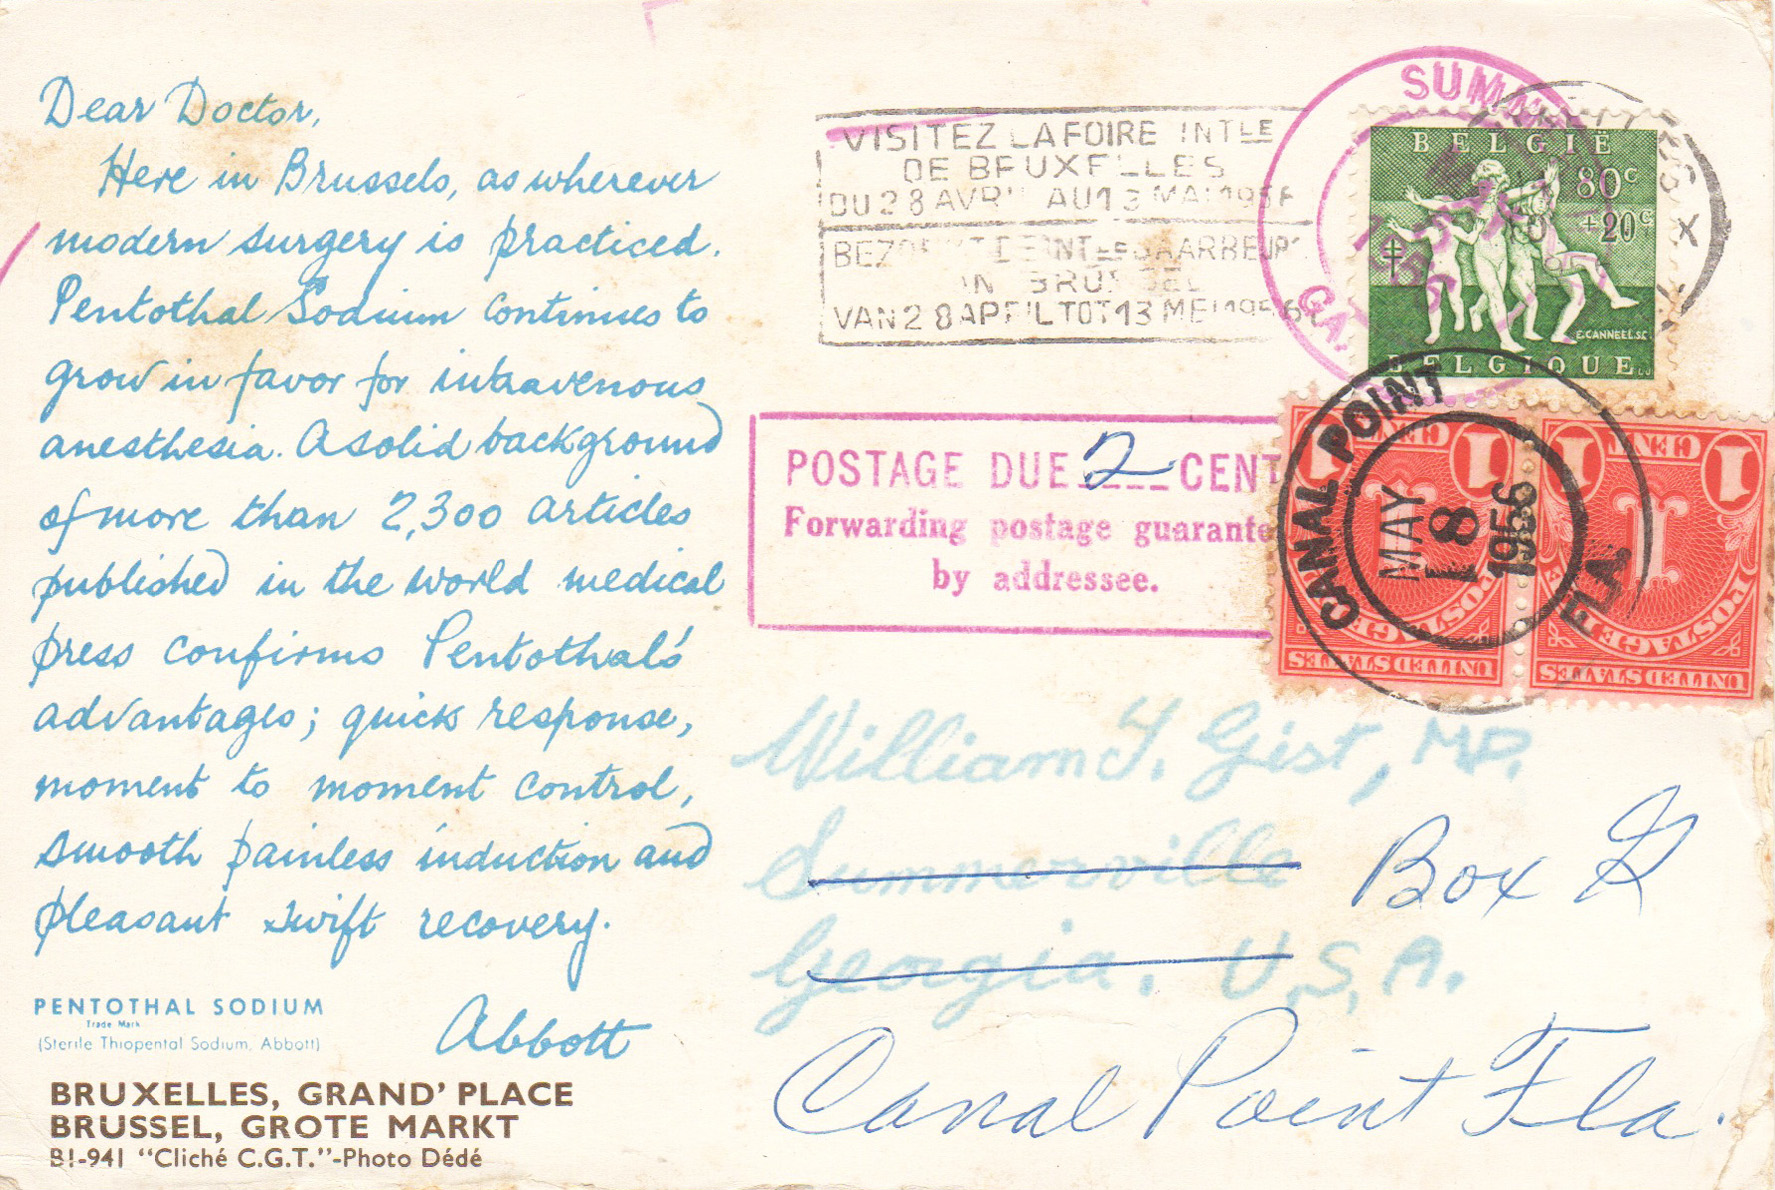 Dear Doctor,
Here in Brussels, as wherever
modern surgery is practiced.
Pentothal Sodium continues to
grow in favor for intravenous
anesthesia. A solid background
of more than 2,300 articles
published in the world medical
press confirms Pentothal's
advantages; quick response,
moment to moment control,
smooth painless induction and
pleasant swift recovery.
Abbott
PENTOTHAL SODIUM
Trade Mark
(Sterile Thiopental Sodium, Abbott)
BRUXELLES, GRAND' PLACE
BRUSSEL, GROTE MARKT
B1-941 "Cliché C.G.T."-Photo Dédé
VISITEZ LA FOIRE INTLE
DE BRUXELLES
DU 28 AVRIL AU 13 MAI 1956
BRUSSEL
VAN 28 APRIL TOT 13 MEI 1956
GA.
BELGIË
80c
+20c
E. CANNEEL SC.
BELGIQUE
POSTAGE DUE 2 CENT
Forwarding postage guarante
by addressee.
CANAL POINT
MAY
18
1956
FLA.
1 CENT 1
POSTAGE
UNITED STATES
1 CENT 1
POSTAGE
UNITED STATES
William Y. Gist, MD.
Summerville
Georgia. U.S.A.
Box G
Canal Point Fla.